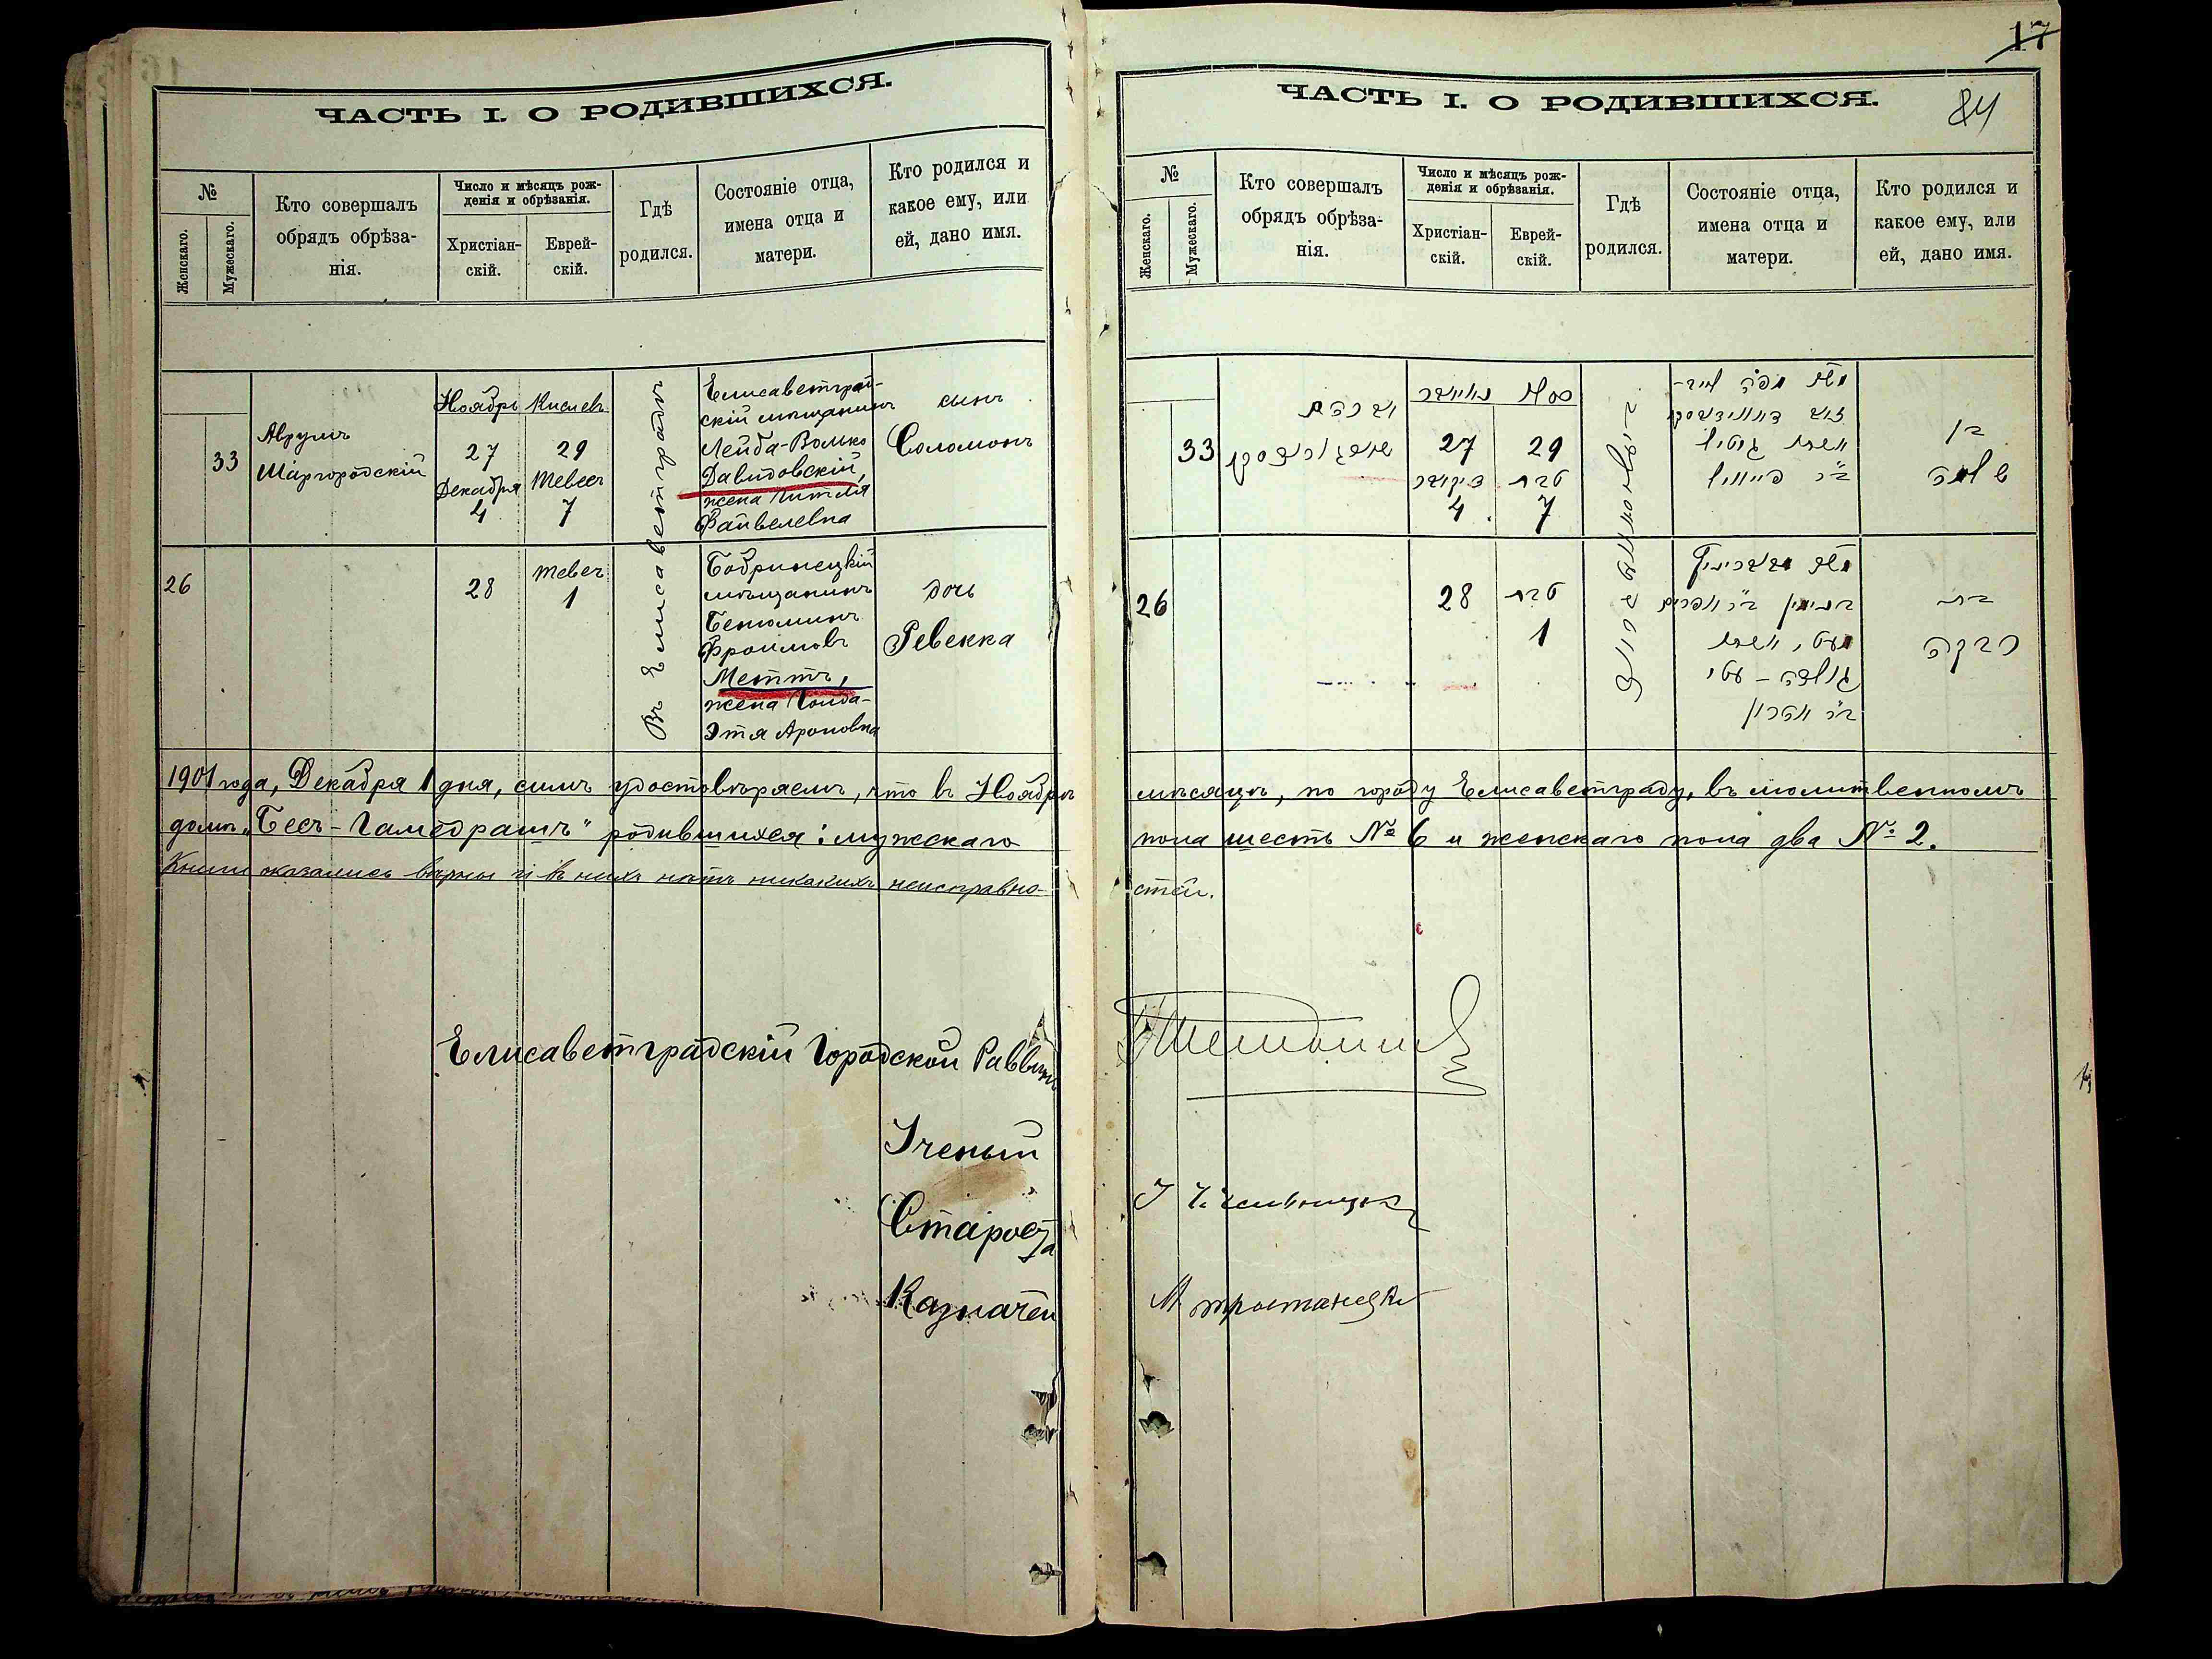 ЧАСТЬ I. О РОДИВШИХСЯ.
№
Женскаго.
Мужескаго.
Кто совершалъ
обрядъ обрѣза-
нія.
Число и мѣсяцъ рож-
денія и обрѣзанія.
Христіан-
скій.
Еврей-
скій.
Гдѣ
родился.
Состояніе отца,
имена отца и
матери.
Кто родился и
какое ему, или
ей, дано имя.
33
Аврумъ
Шаргородскій
Ноябрь
27
Декабря
4
Кислевъ
29
Тевесъ
7
Въ Елисаветградѣ
Елисаветград-
скій мѣщанинъ
Лейба-Волько
Давидовскій,
жена Гителя
Файвелевна
сынъ
Соломонъ
26
28
Тевес
1
Бобринецкій
мѣщанинъ
Бенюминъ
Фроимовъ
Меттъ,
жена Голда-
Этя Ароновна
дочь
Ревекка
1901 года, Декабря 1 дня, симъ удостовѣряемъ, что въ Ноябрѣ
домѣ „Бесъ-Гамедрашъ" родившихся: мужскаго
Книги оказались вѣрны и въ нихъ нѣтъ никакихъ неисправно-
Елисаветградскій Городской Раввинъ
Ученый
Староста
Казначей
17
ЧАСТЬ I. О РОДИВШИХСЯ.
84
№
Женскаго.
Мужескаго.
Кто совершалъ
обрядъ обрѣза-
нія.
Число и мѣсяцъ рож-
денія и обрѣзанія.
Христіан-
скій.
Еврей-
скій.
Гдѣ
родился.
Состояніе отца,
имена отца и
матери.
Кто родился и
какое ему, или
ей, дано имя.
33
אברהם
שארגאראדסקי
27
4
29
טבת
7
בן
שלמה
26
28
טבת
1
בת
רבקה
мѣсяцѣ, по городу Елисаветграду, въ молитвенномъ
пола шесть № 6 и женскаго пола два № 2.
стей.